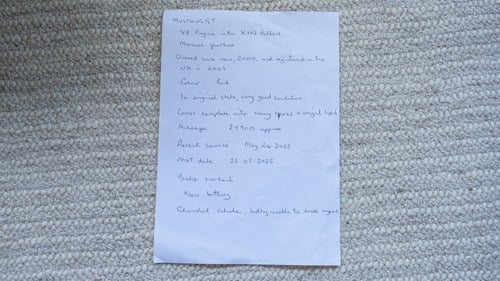 MUSTANG GT
V8 Engine with K+N filters
Manual gearbox
Owned since new, 2000, and registered in the
UK in 2001
Colour: Red
In original state, very good condition
Comes complete with many spares + original
Mileage 27900 approx
Recent service May 24 2025
MOT date 22.05.2025
Brake overhaul
New battery
Cherished vehicle, sadly unable to